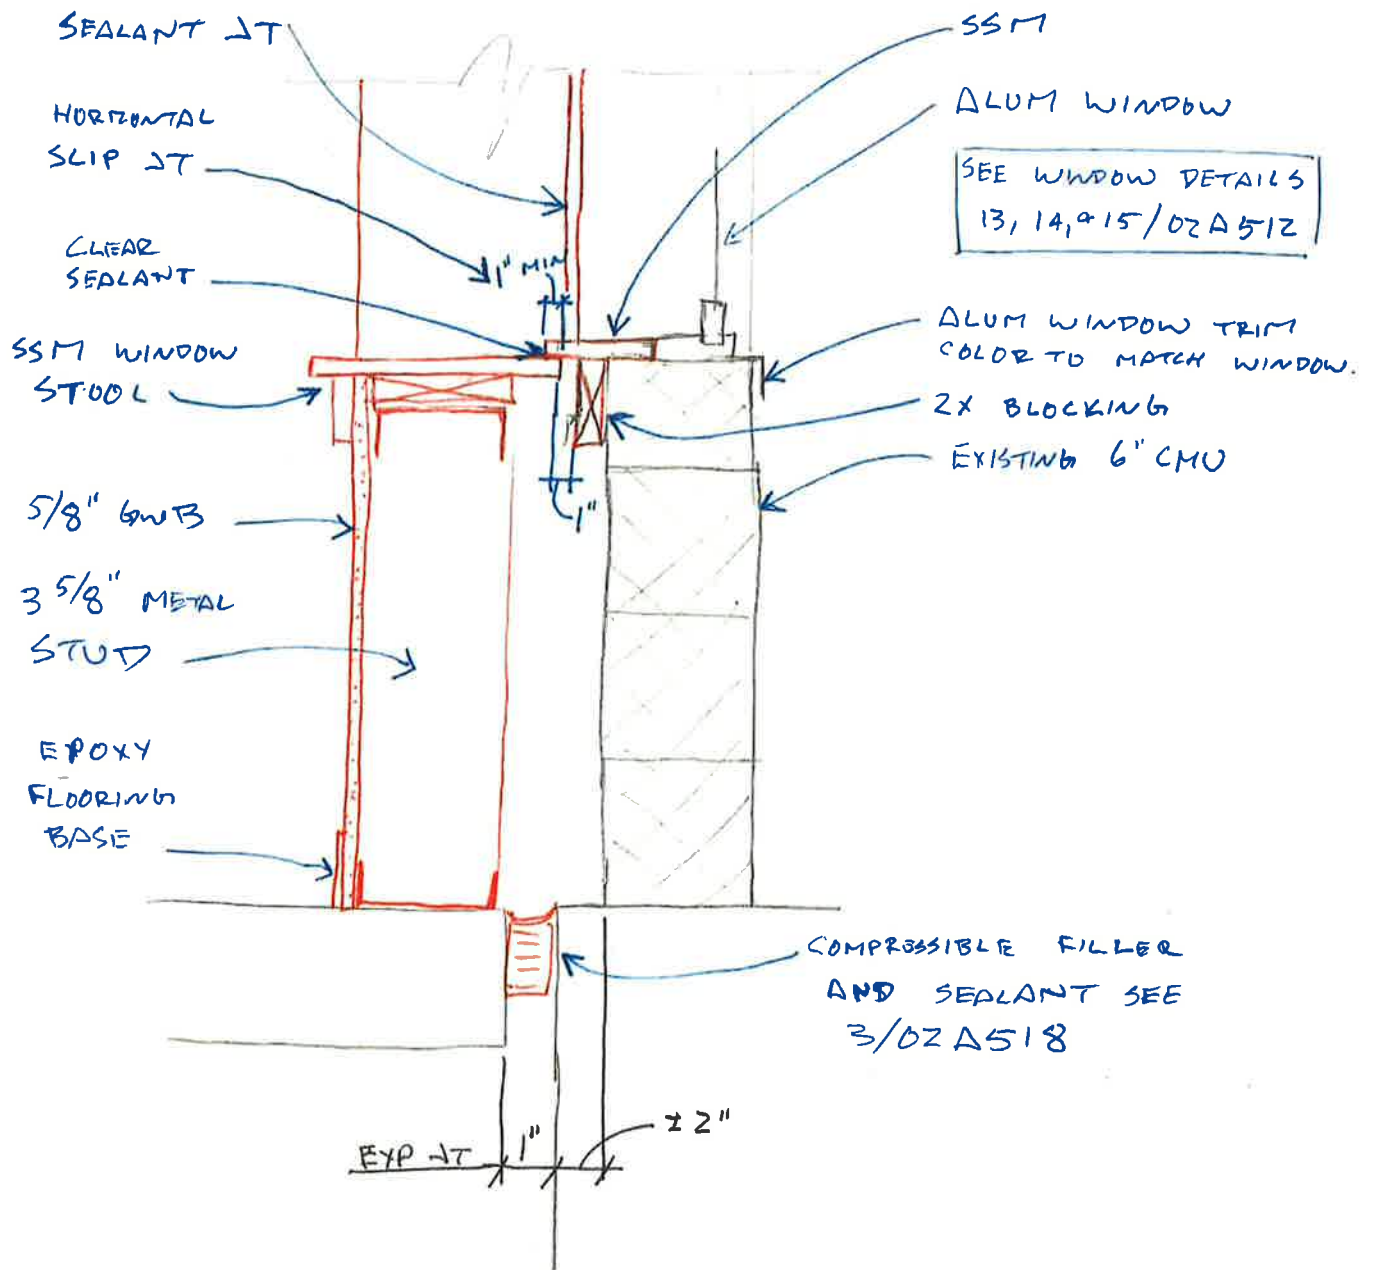 SEALANT JT
HORIZONTAL
SLIP JT
CLEAR
SEALANT
SSM WINDOW
STOOL
5/8" GWB
3 5/8" METAL
STUD
EPOXY
FLOORING
BASE
1" MIN
1"
SSM
ALUM WINDOW
SEE WINDOW DETAILS
13, 14, & 15/02A512
ALUM WINDOW TRIM
COLOR TO MATCH WINDOW.
2X BLOCKING
EXISTING 6" CMU
COMPRESSIBLE FILLER
AND SEALANT SEE
3/02A518
EXP JT
1"
± 2"